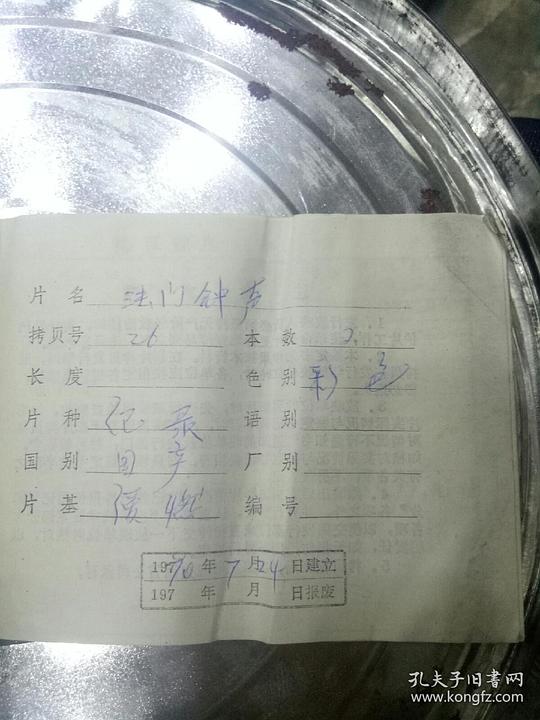 片名 法门钟声
拷贝号 26 本数 2
长度 色别 彩色
片种 纪录 语别
国别 国产 厂别
片基 缓燃 编号
1970年7月24日建立
197 年 月 日报废
孔夫子旧书网
www.kongfz.com